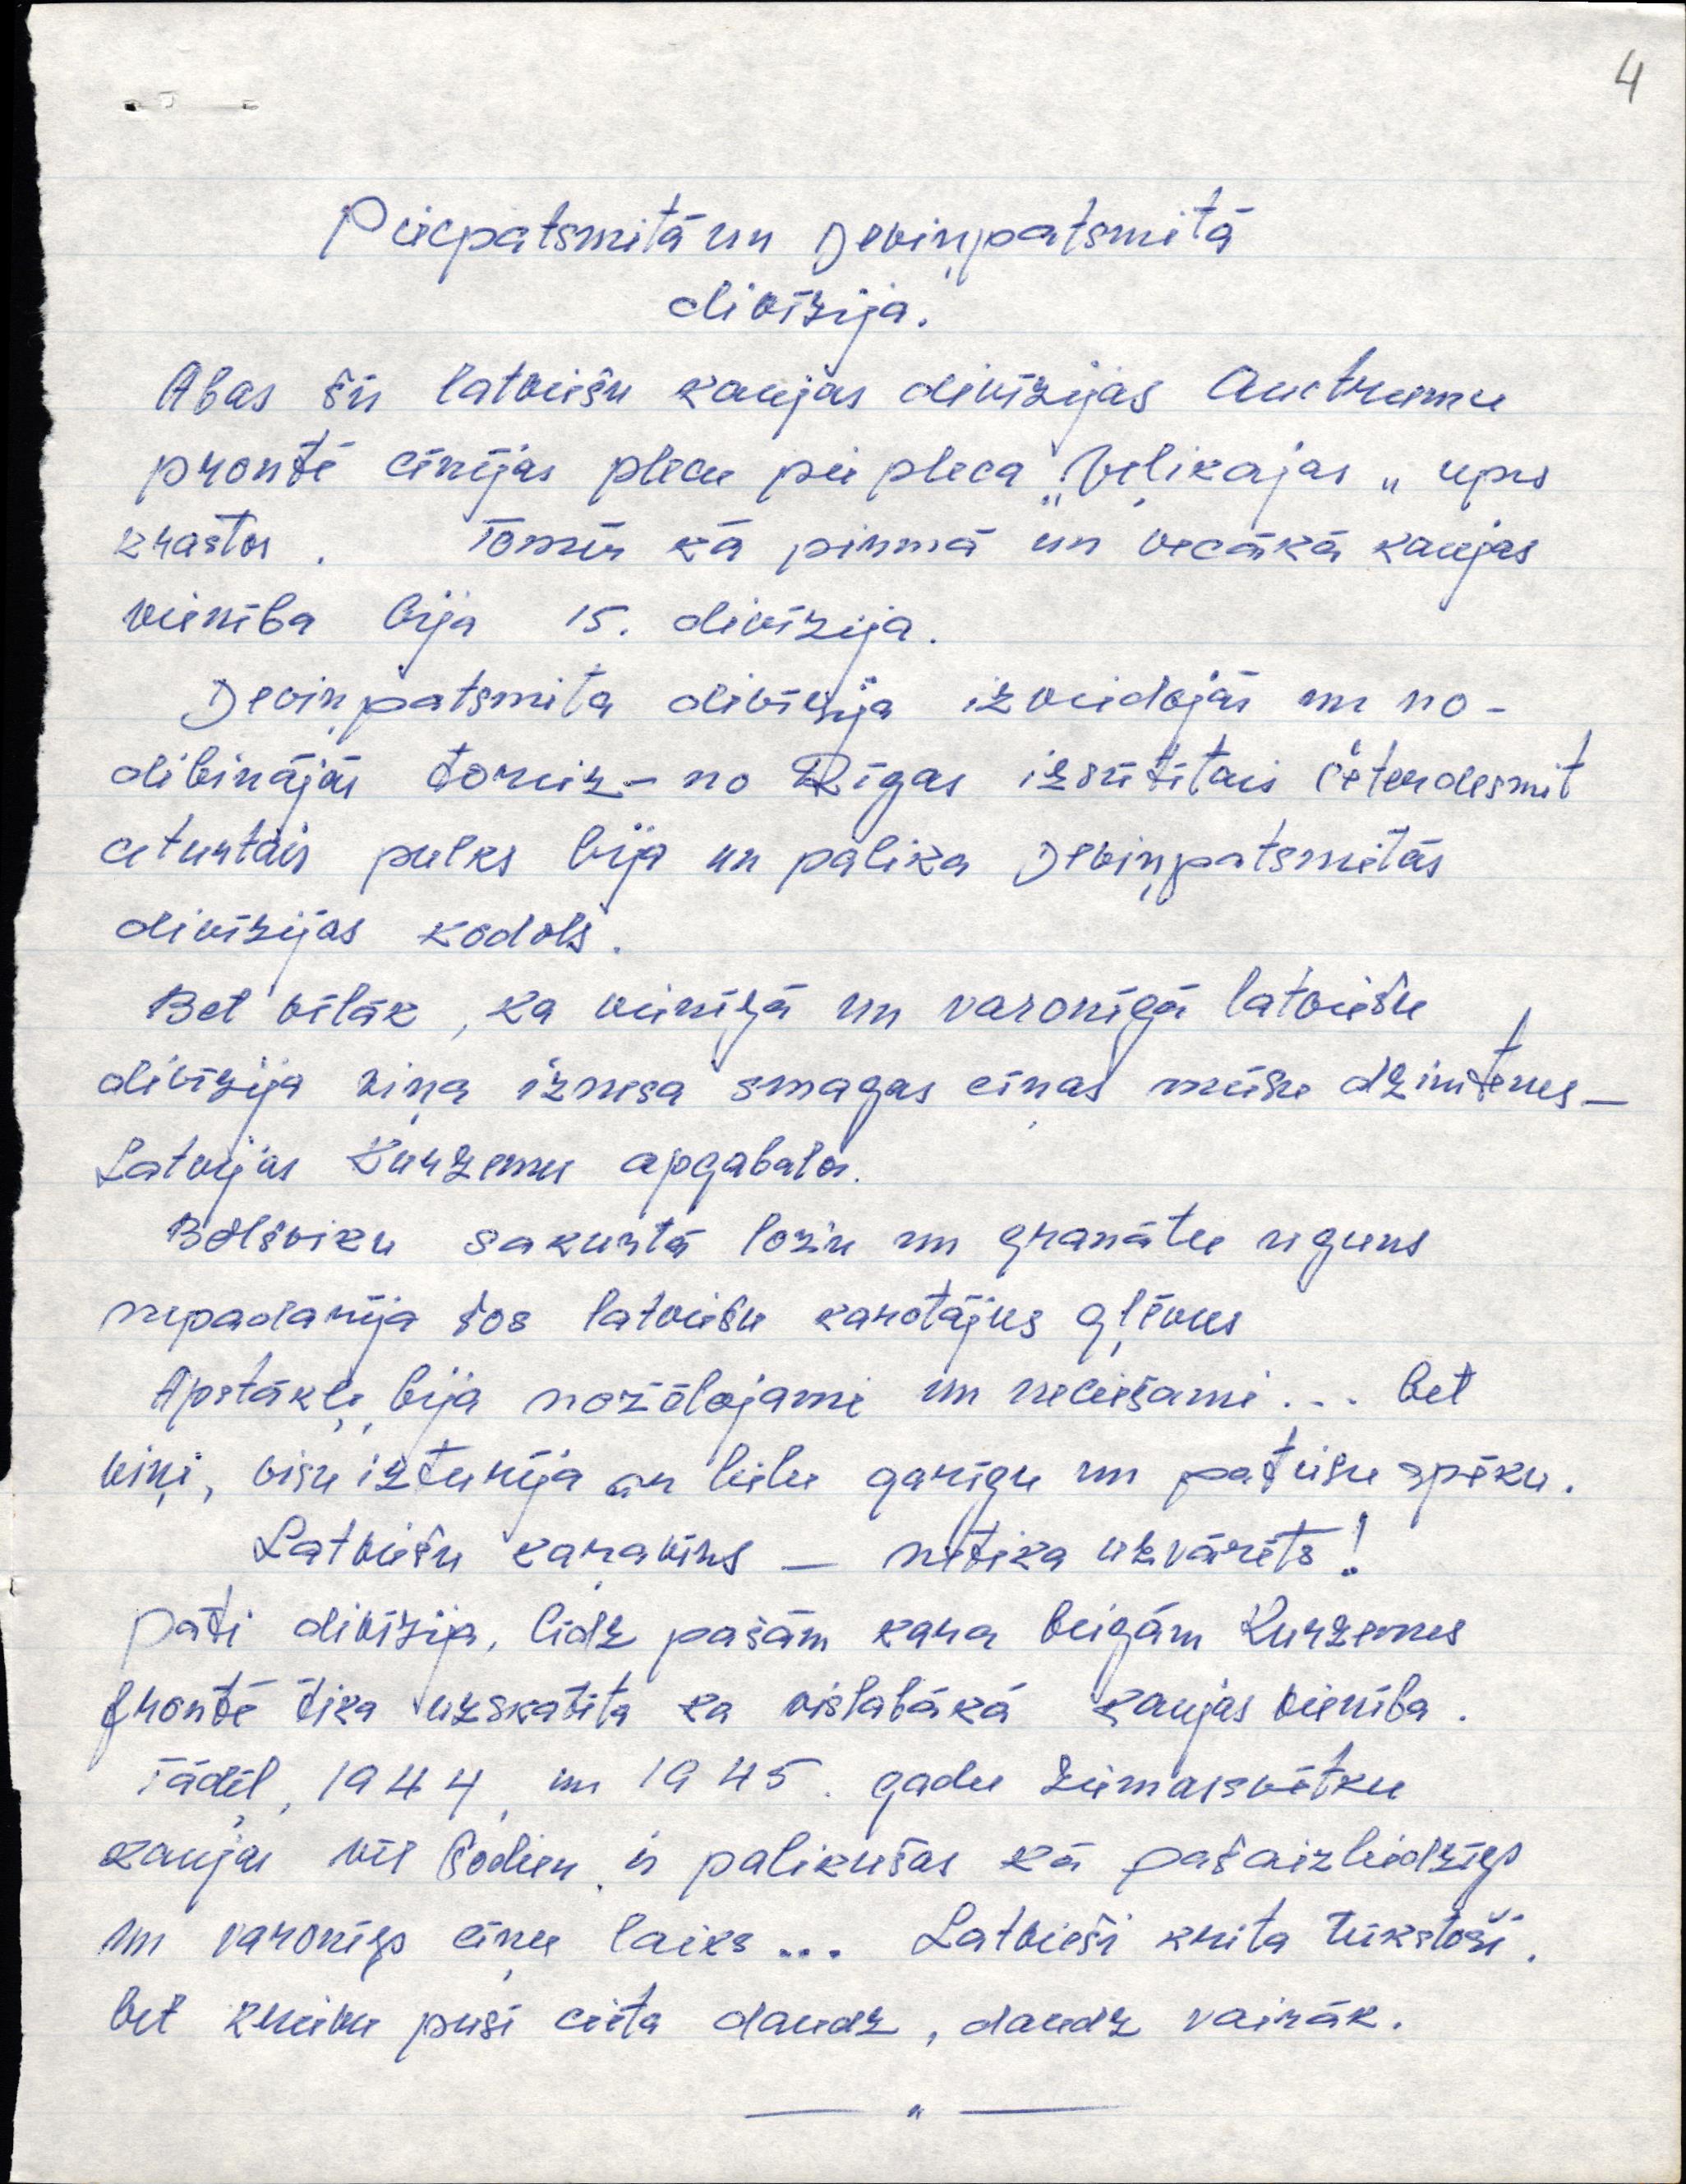 4
Piecpatsmitā un Deviņpatsmitā
divīzija.
Abas šīs latviešu kaujas divīzijas Austrumu
prontē cīnījās plecu pie pleca „Veļikajas„ upes
krastos. Tomēr kā pirmā un vecākā kaujas
vienība bija 15. divīzija.
Deviņpatsmitā divīzija izveidojās un no-
dibinājās toreiz – no Rīgas izsūtītais četrdesmit
ceturtais pulks bija un palika Deviņpatsmitās
divīzijas kodols.
Bet vēlāk, kā vienīgā un varonīgā latviešu
divīzija viņa iznesa smagas cīņas mūsu dzimtenes –
Latvijas Kurzemes apgabalos.
Bolševiku sakurtā ložu un granātu uguns
nepadarīja šos latviešu karotājus gļēvus
Apstākļi bija nožēlojami un neciešami... bet
viņi, visu izturēja ar lielu garīgu un patiesu spēku.
Latviešu karavīrs – netika uzvarēts!
Pati divīzija, līdz pašām kara beigām Kurzemes
frontē tika uzskatīta kā vislabākā kaujas vienība.
Tādēļ, 1944, un 1945. gadu Ziemassvētku
kaujas vēl šodien, ir palikušas kā pašaizliedzīgs
un varonīgs cīņu laiks... Latvieši krita tūkstoši,
bet krievu pusē cieta daudz, daudz vairāk.
— " —